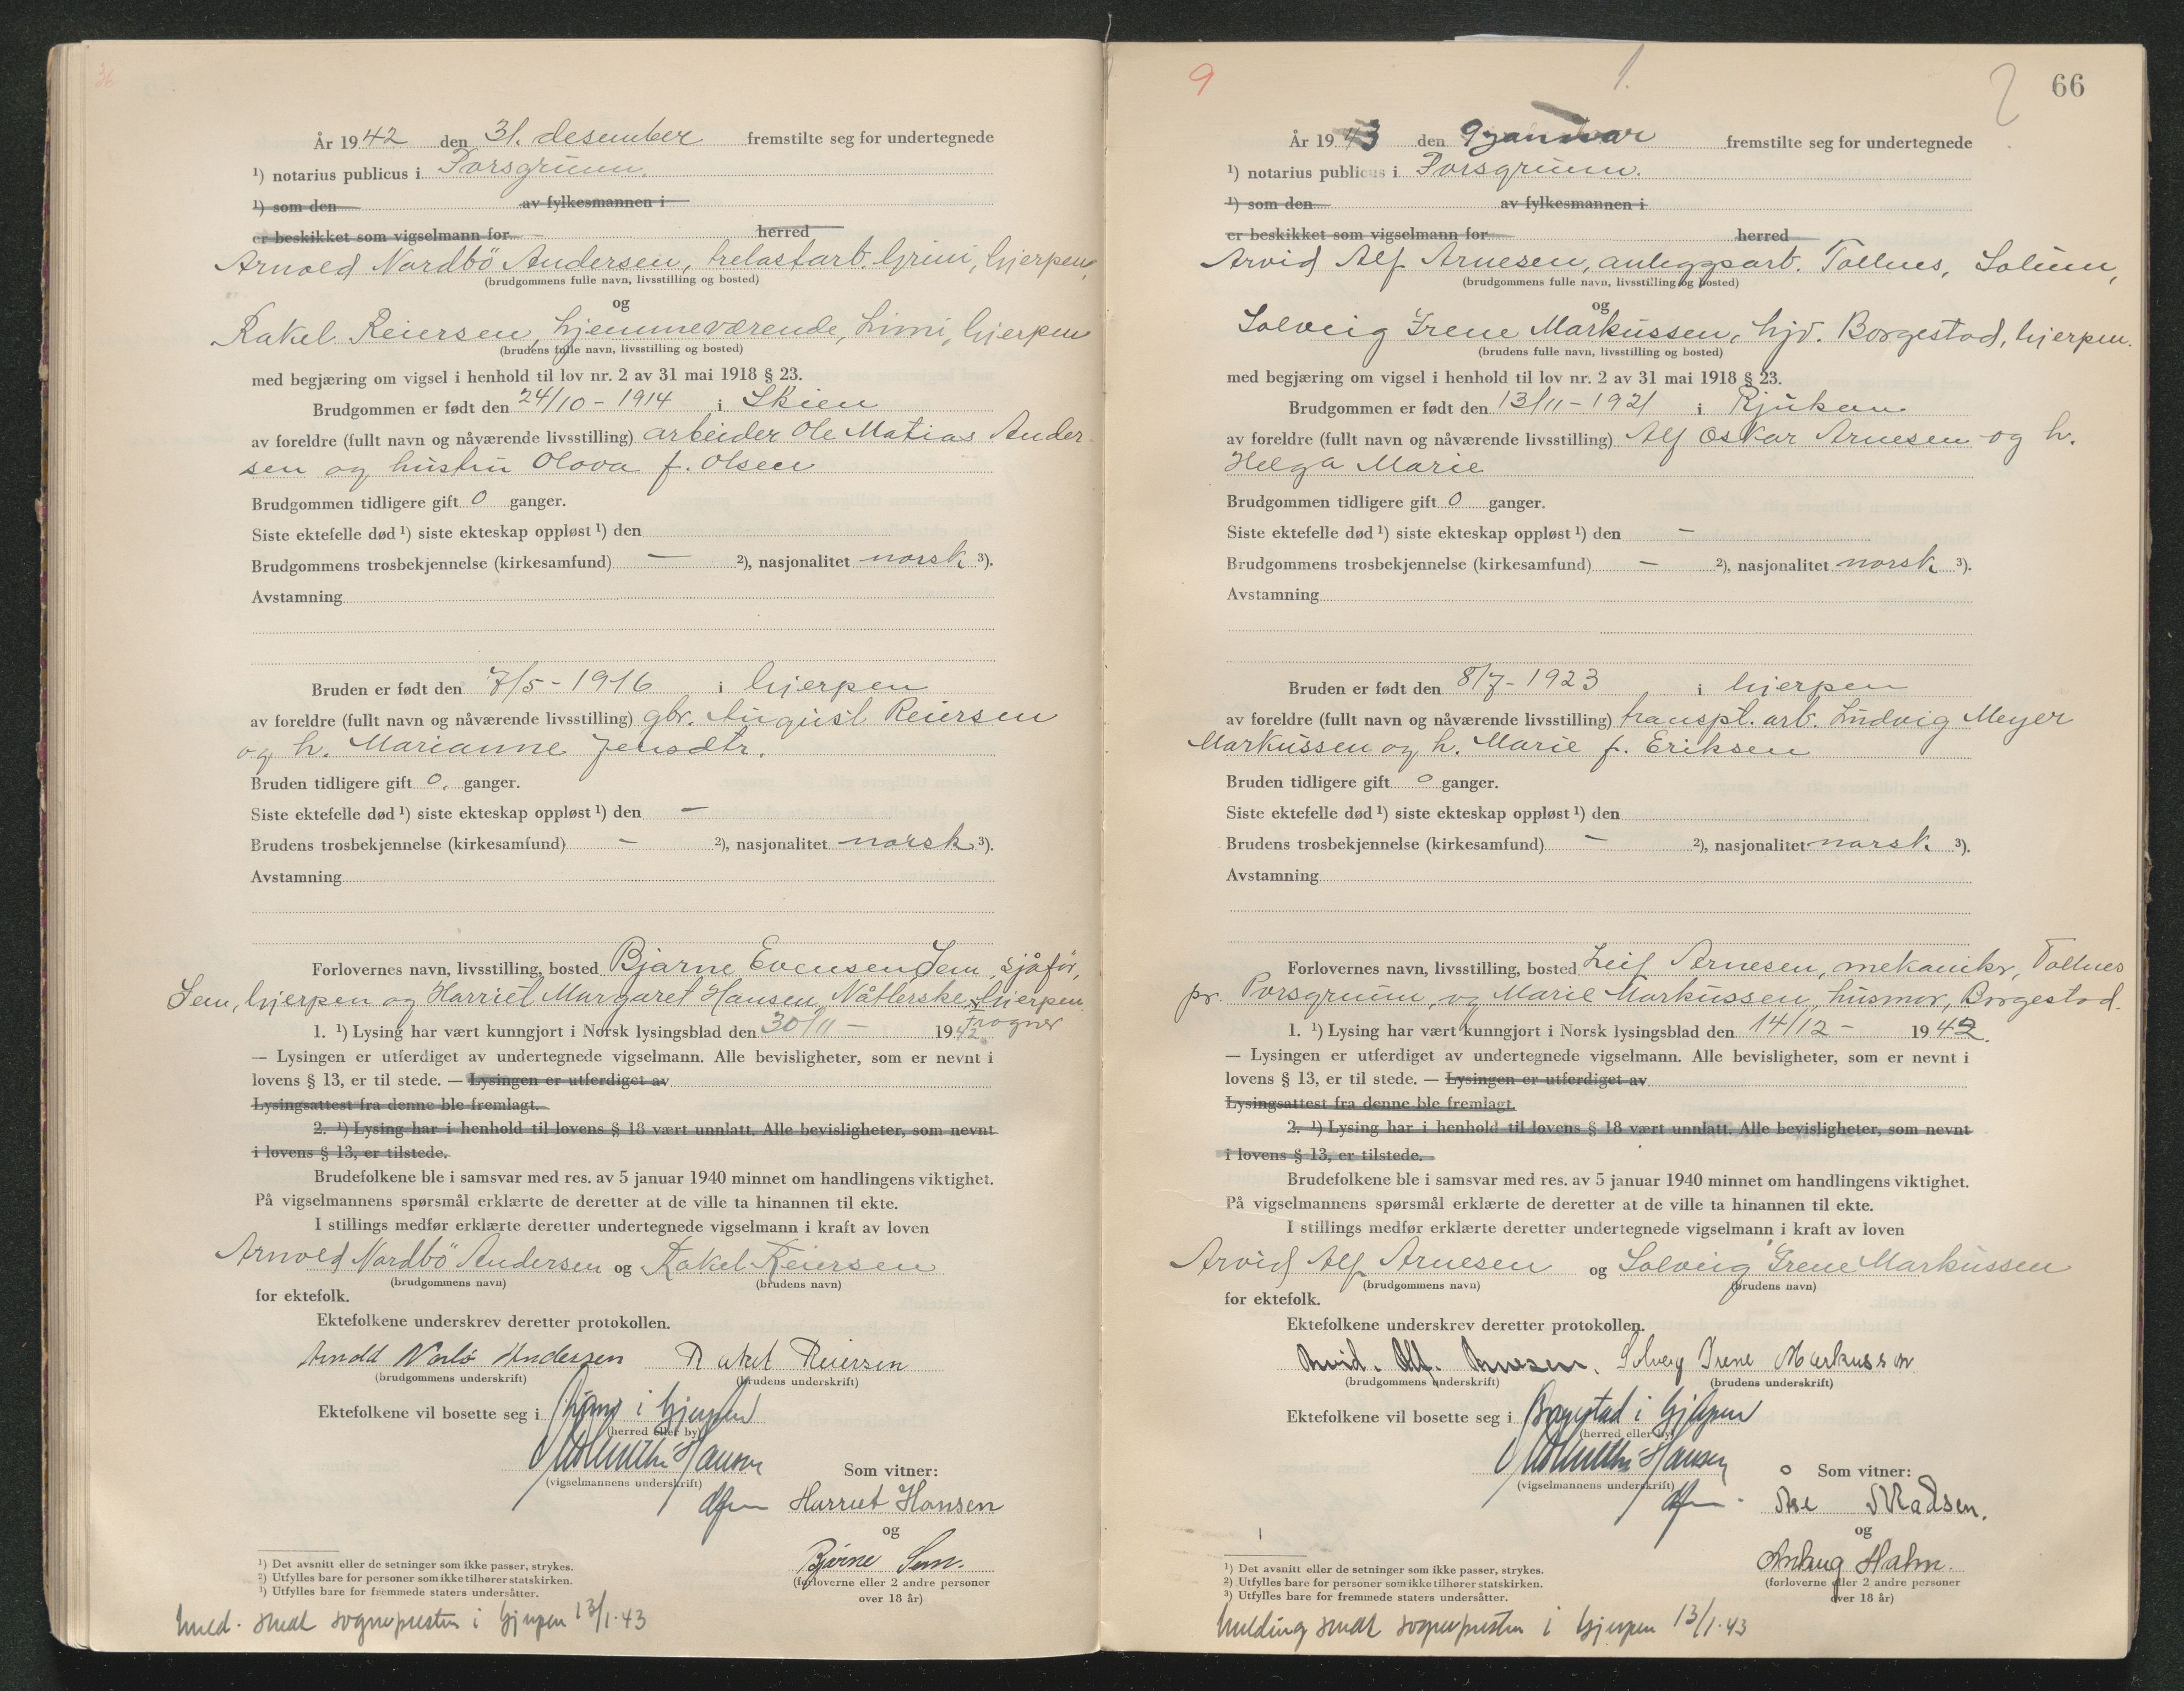 36
År 1942 den 31. desember fremstilte seg for undertegnede
¹) notarius publicus i Porsgrunn.
¹) som den av fylkesmannen i
er beskikket som vigselmann for herred
Arnold Nordbö Andersen, trelastarb. Grini, Gjerpen,
(brudgommens fulle navn, livsstilling og bosted)
og
Rakel Reiersen, hjemmeværende, Limi, Gjerpen
(brudens fulle navn, livsstilling og bosted)
med begjæring om vigsel i henhold til lov nr. 2 av 31 mai 1918 § 23.
Brudgommen er født den 24/10 - 1914 i Skien
av foreldre (fullt navn og nåværende livsstilling) arbeider Ole Matias Ander-
sen og hustru Olova f. Olsen
Brudgommen tidligere gift 0 ganger.
Siste ektefelle død ¹) siste ekteskap oppløst ¹) den
Brudgommens trosbekjennelse (kirkesamfund) — ²), nasjonalitet norsk ³).
Avstamning
Bruden er født den 7/5 - 1916 i Gjerpen
av foreldre (fullt navn og nåværende livsstilling) gbr. August Reiersen
og h. Marianne Jensdtr.
Bruden tidligere gift 0. ganger.
Siste ektefelle død ¹) siste ekteskap oppløst ¹) den —
Brudens trosbekjennelse (kirkesamfund) - ²), nasjonalitet norsk ³).
Avstamning
Forlovernes navn, livsstilling, bosted Bjarne Evensen Sem, sjåför,
Sem, Gjerpen og Harriet Margaret Hansen, Gjerpen
1. ¹) Lysing har vært kunngjort i Norsk lysingsblad den 30/11 - 1942
— Lysingen er utferdiget av undertegnede vigselmann. Alle bevisligheter, som er nevnt i
lovens § 13, er til stede. — Lysingen er utferdiget av
Lysingsattest fra denne ble fremlagt.
2. ¹) Lysing har i henhold til lovens § 18 vært unnlatt. Alle bevisligheter, som nevnt
i lovens § 13, er tilstede.
Brudefolkene ble i samsvar med res. av 5 januar 1940 minnet om handlingens viktighet.
På vigselmannens spørsmål erklærte de deretter at de ville ta hinannen til ekte.
I stillings medfør erklærte deretter undertegnede vigselmann i kraft av loven
Arnold Nordbö Andersen og Rakel Reiersen
(brudgommens navn) (brudens navn)
for ektefolk.
Ektefolkene underskrev deretter protokollen.
Arnold Norbö Andersen Rakel Reiersen
(brudgommens underskrift) (brudens underskrift)
Ektefolkene vil bosette seg i i Gjerpen
(herred eller by)
Hansen
(vigselmannens underskrift)
Som vitner:
Harriet Hansen
og
Bjarne Sem.
(forloverne eller 2 andre personer
over 18 år)
¹) Det avsnitt eller de setninger som ikke passer, strykes.
²) Utfylles bare for personer som ikke tilhører statskirken.
³) Utfylles bare for fremmede staters undersåtter.
Meld. sendt sognepresten i Gjerpen 13/1.43
9
1.
66
År 1943 den 9 januar fremstilte seg for undertegnede
¹) notarius publicus i Porsgrunn.
¹) som den av fylkesmannen i
er beskikket som vigselmann for herred
Arvid Alf Arnesen, anleggsarb. Tollnes, Solum,
(brudgommens fulle navn, livsstilling og bosted)
og
Solveig Irene Markussen, hjv. Borgestad, Gjerpen.
(brudens fulle navn, livsstilling og bosted)
med begjæring om vigsel i henhold til lov nr. 2 av 31 mai 1918 § 23.
Brudgommen er født den 13/11 - 1921 i Rjukan
av foreldre (fullt navn og nåværende livsstilling) Alf Oskar Arnesen og h.
Helga Marie
Brudgommen tidligere gift 0 ganger.
Siste ektefelle død ¹) siste ekteskap oppløst ¹) den —
Brudgommens trosbekjennelse (kirkesamfund) - ²), nasjonalitet norsk ³).
Avstamning
Bruden er født den 8/7 - 1923 i Gjerpen
av foreldre (fullt navn og nåværende livsstilling) transpt. arb. Ludvig Meyer
Markussen og h. Marie f. Eriksen
Bruden tidligere gift 0 ganger.
Siste ektefelle død ¹) siste ekteskap oppløst ¹) den
Brudens trosbekjennelse (kirkesamfund) - ²), nasjonalitet norsk. ³).
Avstamning
Forlovernes navn, livsstilling, bosted Leif Arnesen, mekanikr, Tollnes
pr. Porsgrunn, og Marie Markussen, husmor, Borgestad.
1. ¹) Lysing har vært kunngjort i Norsk lysingsblad den 14/12 - 1942.
— Lysingen er utferdiget av undertegnede vigselmann. Alle bevisligheter, som er nevnt i
lovens § 13, er til stede. — Lysingen er utferdiget av
Lysingsattest fra denne ble fremlagt.
2. ¹) Lysing har i henhold til lovens § 18 vært unnlatt. Alle bevisligheter, som nevnt
i lovens § 13, er tilstede.
Brudefolkene ble i samsvar med res. av 5 januar 1940 minnet om handlingens viktighet.
På vigselmannens spørsmål erklærte de deretter at de ville ta hinannen til ekte.
I stillings medfør erklærte deretter undertegnede vigselmann i kraft av loven
Arvid Alf Arnesen og Solveig Irene Markussen
(brudgommens navn) (brudens navn)
for ektefolk.
Ektefolkene underskrev deretter protokollen.
Arvid. Alf. Arnesen. Solveig Irene Markussen
(brudgommens underskrift) (brudens underskrift)
Ektefolkene vil bosette seg i Borgestad i Gjerpen
(herred eller by)
Hansen
(vigselmannens underskrift)
Som vitner:
Åse Madsen.
og
Holm.
(forloverne eller 2 andre personer
over 18 år)
¹) Det avsnitt eller de setninger som ikke passer, strykes.
²) Utfylles bare for personer som ikke tilhører statskirken.
³) Utfylles bare for fremmede staters undersåtter.
Melding sendt sognepresten i Gjerpen 13/1.43